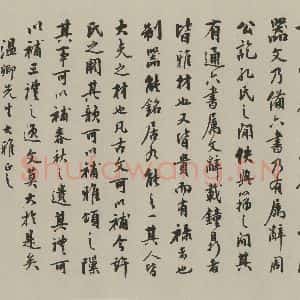 器文乃備六書乃有屬辭周
公訖孔氏之間佚與籀之間其
有通六書属文辭載鐘鼎者
皆雅材也又皆貴而有禄者也
制器能銘居九能之一其人皆
大夫之材也凡古文可以補今許
氏之闕其韻可以補雅頌之隙
其事可以補春秋之遺其禮可
以補三禮之逸文莫大於是矣
溫卿先生大雅正之